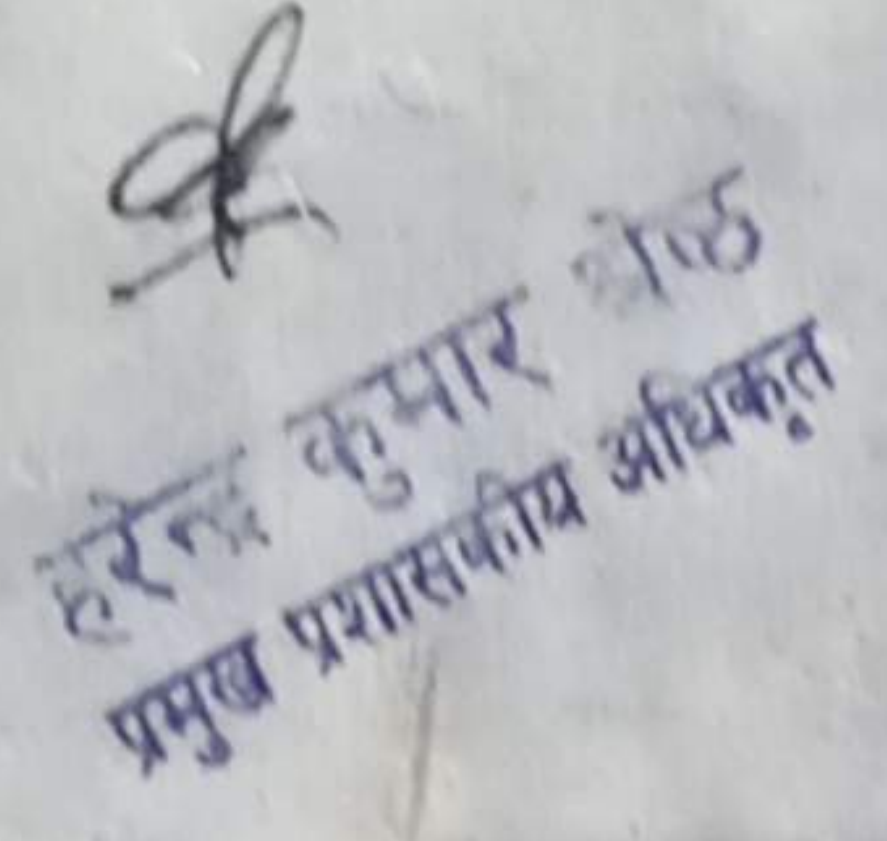 हरेन्द्र कुमार
प्रमुख प्रशासकीय अधिकृत